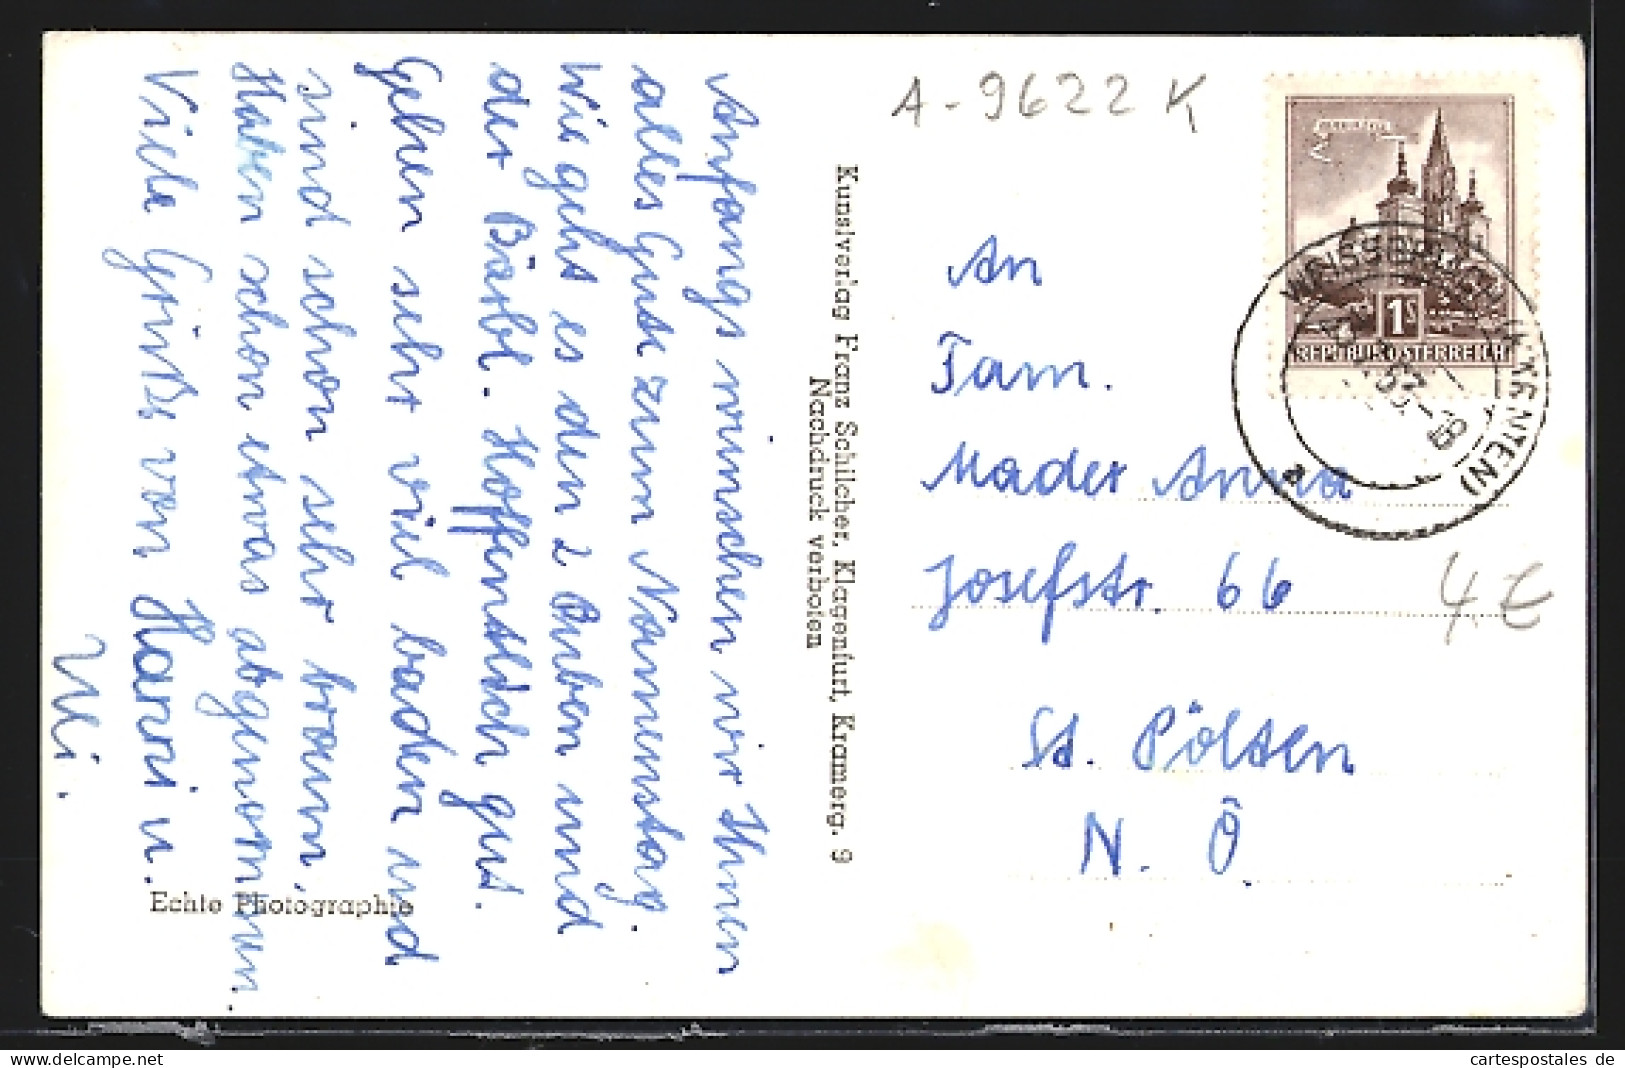 Anfangs wünschen wir Ihnen
alles Gute zum Namenstag.
Wie geht es den 2 Buben und
der Bärbl. Hoffentlich gut.
Gehen sehr viel baden und
sind schon sehr braun.
Haben schon etwas abgenommen.
Viele Grüße von Hanni u.
Uli.
Echte Photographie
Kunstverlag Franz Schilcher, Klagenfurt, Kramerg. 9
Nachdruck verboten
A-9622 K
1S
REPUBLIK ÖSTERREICH
WEISSBRIACH (KÄRNTEN)
An
Fam.
Mader Anna
Josefstr. 66
St. Pölten
N. Ö.
4,€
cartespostales de